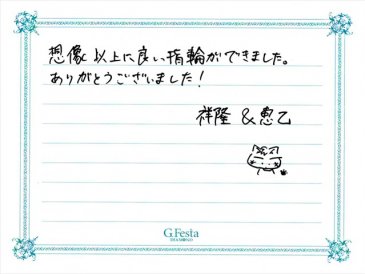 想像以上に良い指輪ができました。
ありがとうございました!
祥隆 & 恵乙
G.Festa
DIAMOND